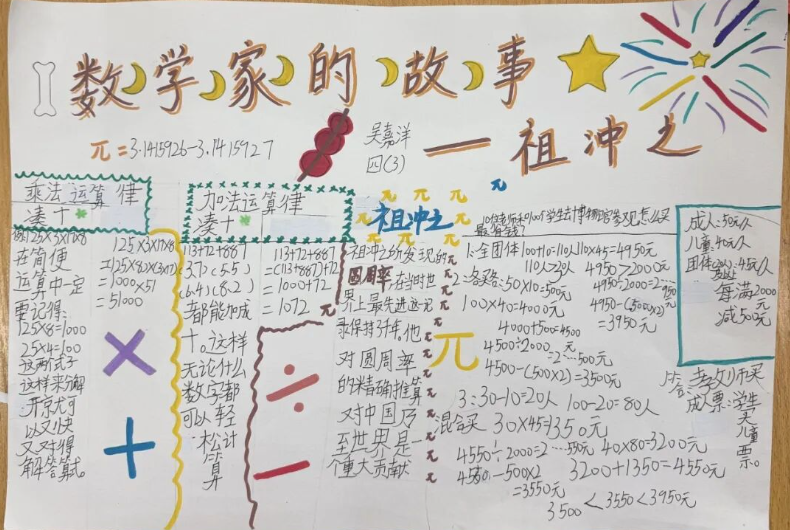 数学家的故事
—祖冲之
π=3.1415926-3.1415927
吴嘉洋
四(3)
乘法运算律
凑十
例:125×3×17×8
125×3×17×8
=(125×8)×(3×17)
=1000×51
=51000
在简便
运算中一定
要记得:
125×8=1000
25×4=100
这两式子
这样来分解
开京尤可
以又快
又对得
解答算式。
加法运算律
凑十
113+72+887
3.7 (5.5)
(6.4) (8.2)
113+72+887
=(113+887)+72
=1000+72
=1072
都能加成
十。这样
无论什么
数字都
可以轻
松计
算
祖冲之
祖冲之所发现的
圆周率在当时世
界上最先进这记
录保持了千年。他
对圆周率
的精确推算
对中国乃
至世界是一
个重大贡献
10位老师和100个学生去博物馆参观怎么买
最省钱?
1:全团体100+10=110人 110×45=4950元
110人>20人 4950>2000元
4950÷2000=2…950元
4950-(500×2)
=3950元
2:各买各:50×10=500元
100×40=4000元
4000+500=4500
4500÷2000元
=2…500元
4500-(500×2)=3500元
3:30-10=20人 100-20=80人
混合买 30×45=1350元
40×80=3200元
3200+1350=4550元
4550÷2000=2…550元
4550-500×2
=3550元
3500<3550<3950元
成人:50元/人
儿童:40元/人
团体 45元/人
每满2000
元
减500元
答:老师买
成人票:学生
买
儿童
票。